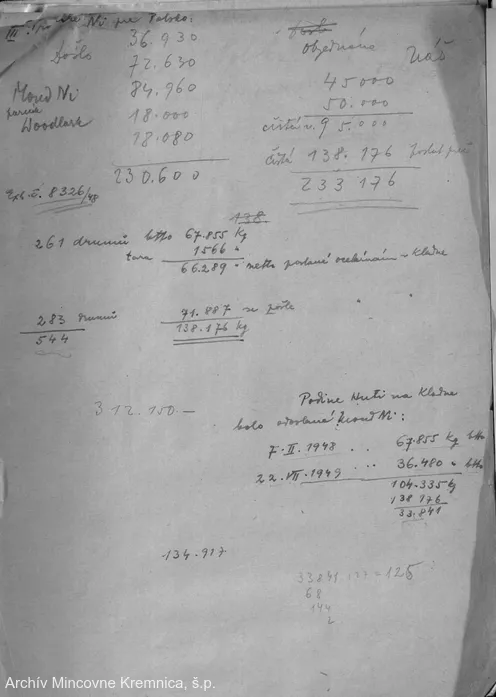 III. Ni pre Poľsko:
Došlo 36.930
72.630
Mond Ni 84.960
Woodlark 18.000
18.080
230.600
Exp. č. 8326/48
objednané
Náš
45000
50.000
čistá v. 95.000
čistá 138.176
233 176
138
261 drumů btto 67.855 kg
tara 1566 "
66.289 " netto poslané ocelárnám v Kladne
283 drumů 71.887 se pošle
544 138.176 kg
3.12.150.—
Podľa Huti na Kladne
bolo odoslané Mond Ni:
7.II.1948 .. 67.855 kg btto
22.VII.1949 ... 36.480 " btto
104.335 kg
138176
33.841
134.917
33841 = 125
68
144
2
Archív Mincovne Kremnica, š.p.